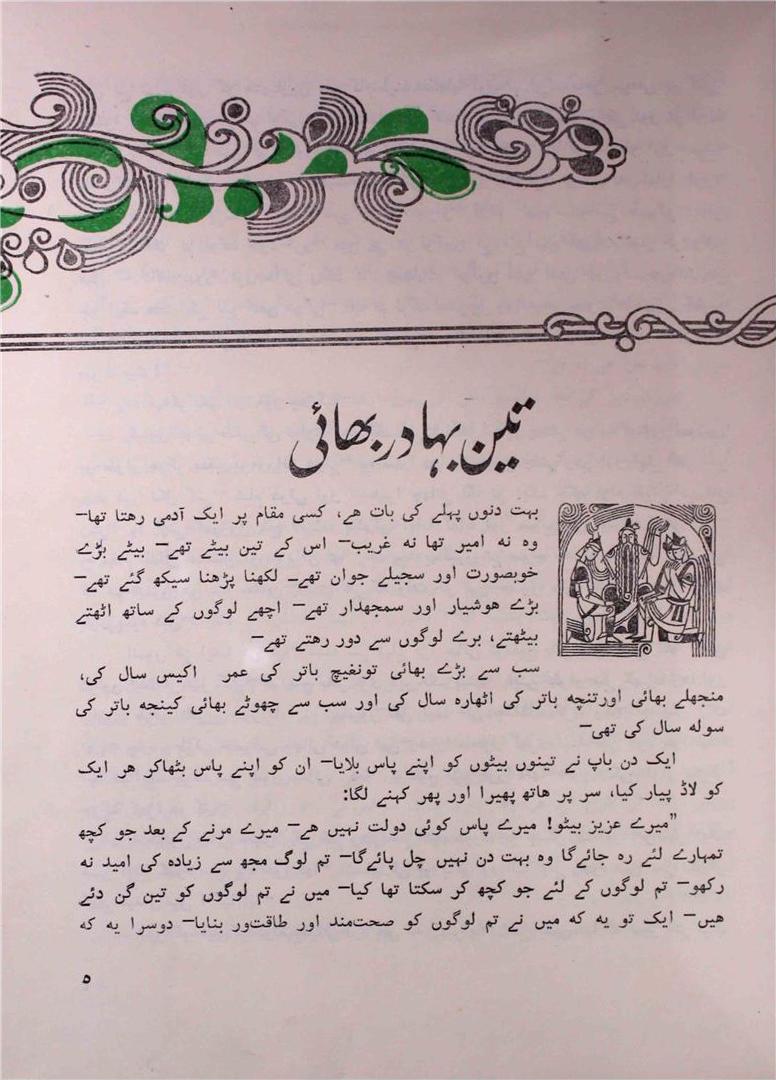 تین بہادر بھائی
بہت دنوں پہلے کی بات ھے، کسی مقام پر ایک آدمی رھتا تھا—
وہ نہ امیر تھا نہ غریب— اس کے تین بیٹے تھے— بیٹے بڑے
خوبصورت اور سجیلے جوان تھے— لکھنا پڑھنا سیکھ گئے تھے—
بڑے ھوشیار اور سمجھدار تھے— اچھے لوگوں کے ساتھ اٹھتے
بیٹھتے، برے لوگوں سے دور رھتے تھے—
سب سے بڑے بھائی تونغیچ باتر کی عمر اکیس سال کی،
منجھلے بھائی اورتنچہ باتر کی اٹھارہ سال کی اور سب سے چھوٹے بھائی کینجہ باتر کی
سولہ سال کی تھی—
ایک دن باپ نے تینوں بیٹوں کو اپنے پاس بلایا— ان کو اپنے پاس بٹھاکر ھر ایک
کو لاڈ پیار کیا، سر پر ھاتھ پھیرا اور پھر کہنے لگا:
”میرے عزیز بیٹو! میرے پاس کوئی دولت نہیں ھے— میرے مرنے کے بعد جو کچھ
تمہارے لئے رہ جائےگا وہ بہت دن نہیں چل پائےگا— تم لوگ مجھ سے زیادہ کی امید نہ
رکھو— تم لوگوں کے لئے جو کچھ کر سکتا تھا کیا— میں نے تم لوگوں کو تین گن دئے
ھیں— ایک تو یہ کہ میں نے تم لوگوں کو صحت‌مند اور طاقت‌ور بنایا— دوسرا یہ کہ
۵